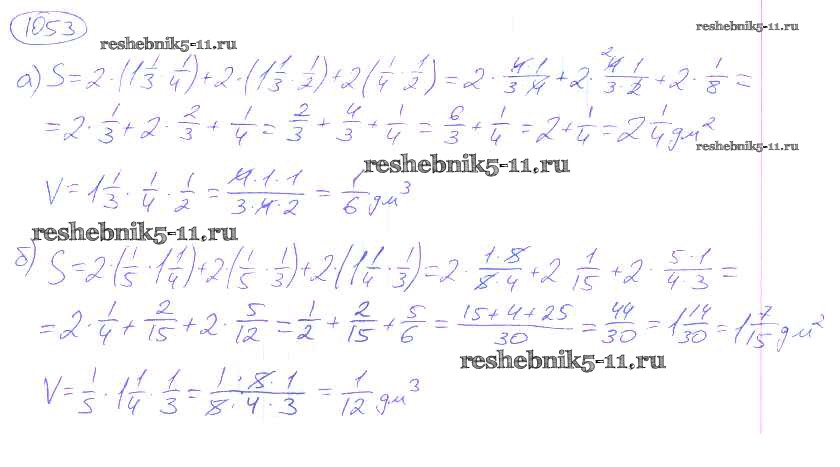 1053
reshebnik5-11.ru
reshebnik5-11.ru
а) S = 2·(1 1/3 · 1/4) + 2·(1 1/3 · 1/2) + 2(1/4 · 1/2) = 2 · 4·1/3·4 + 2 · 4·1/3·2 + 2 · 1/8 =
= 2 · 1/3 + 2 · 2/3 + 1/4 = 2/3 + 4/3 + 1/4 = 6/3 + 1/4 = 2 + 1/4 = 2 1/4 дм²
reshebnik5-11.ru
reshebnik5-11.ru
V = 1 1/3 · 1/4 · 1/2 = 4·1·1/3·4·2 = 1/6 дм³
reshebnik5-11.ru
б) S = 2·(1/5 · 1 1/4) + 2(1/5 · 1/3) + 2·(1 1/4 · 1/3) = 2 · 1·5/5·4 + 2 1/15 + 2 · 5·1/4·3 =
= 2 · 1/4 + 2/15 + 2 · 5/12 = 1/2 + 2/15 + 5/6 = 15+4+25/30 = 44/30 = 1 14/30 = 1 7/15 дм²
reshebnik5-11.ru
V = 1/5 · 1 1/4 · 1/3 = 1·5·1/5·4·3 = 1/12 дм³